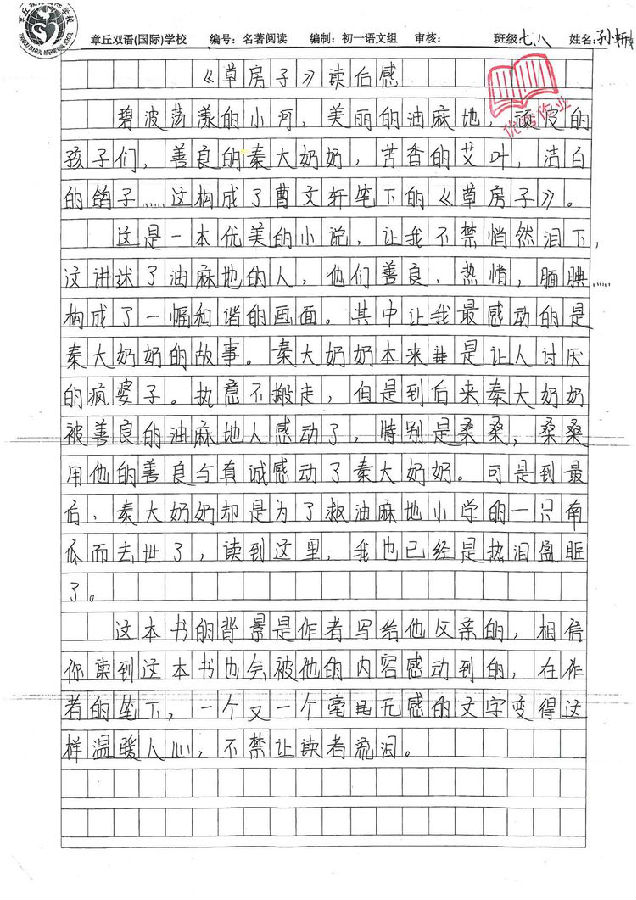 章丘双语(国际)学校 编号:名著阅读 编制:初一语文组 审核: 班级:七.八 姓名:孙
《草房子》读后感
碧波荡漾的小河，美丽的油麻地，顽皮的
孩子们，善良的秦大奶奶，苦香的艾叶，洁白
的鸽子……这构成了曹文轩笔下的《草房子》。
这是一本优美的小说，让我不禁悄然泪下，
这讲述了油麻地的人，他们善良、热情，腼腆……
构成了一幅和谐的画面。其中让我最感动的是
秦大奶奶的故事。秦大奶奶本来是让人讨厌
的疯婆子。执意不搬走，但是到后来秦大奶奶
被善良的油麻地人感动了，特别是桑桑，桑桑
用他的善良与真诚感动了秦大奶奶。可是到最
后、秦大奶奶却是为了救油麻地小学的一只南
瓜而去世了，读到这里，我也已经是热泪盈眶
了。
这本书的背景是作者写给他父亲的，相信
你读到这本书也会被他的内容感动到的，在作
者的笔下，一个又一个毫无感的文字变得这
样温暖人心，不禁让读者流泪。
优秀作业